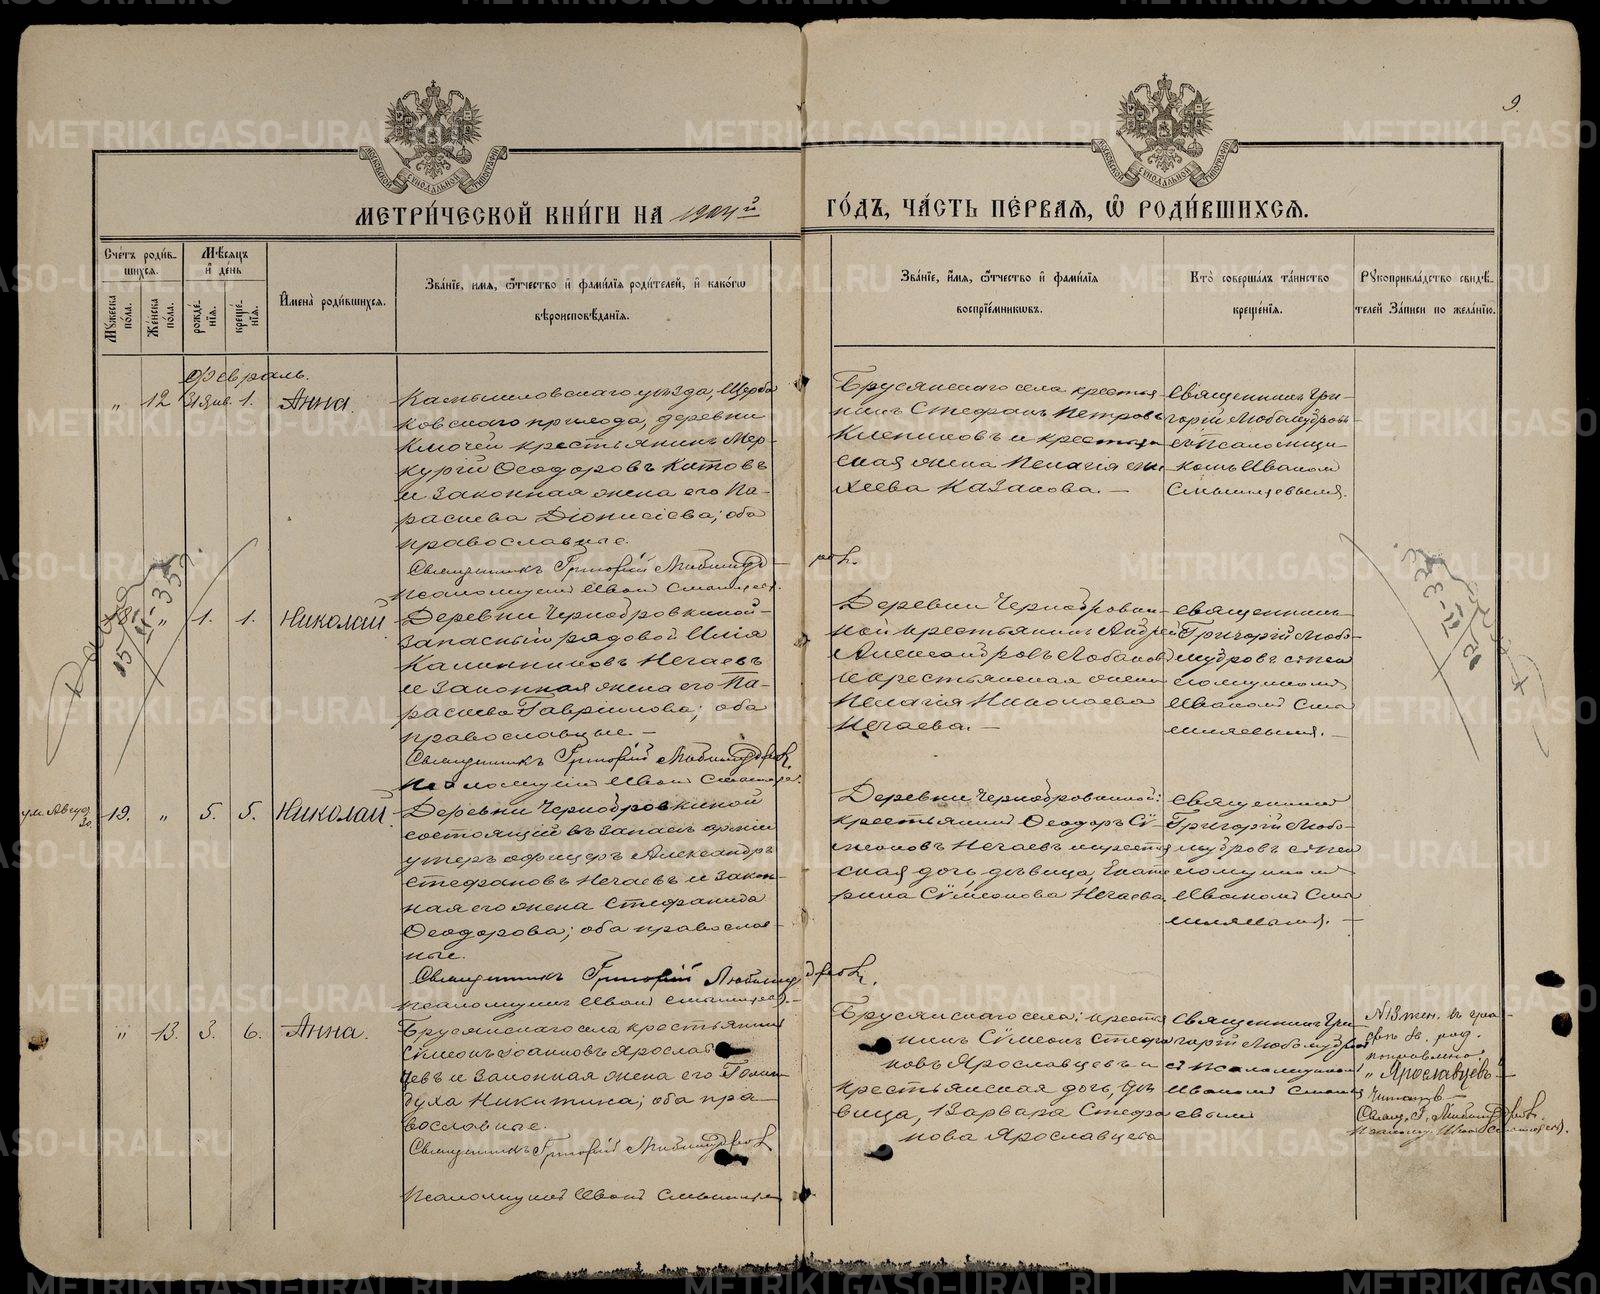 9.
МЕТРИ́ЧЕСКОЙ КНИ́ГИ НА 1904й
ГО́ДЪ, ЧА́СТЬ ПЕ́РВАѦ, Ѡ҆ РОДИ́ВШИХСѦ.
Сче́тъ роди́в-
шихсѧ.
Мꙋ́жеска
по́ла.
Же́нска
по́ла.
Мѣ́сѧцъ
и҆ де́нь
рожде́-
нїѧ.
креще́-
нїѧ.
И҆мена̀ роди́вшихсѧ.
Зва́нїе, и҆́мѧ, ѻ҆́тчество и҆ фами́лїѧ роди́телей, и҆ како́гѡ
вѣроисповѣ́данїѧ.
Зва́нїе, и҆́мѧ, ѻ҆́тчество и҆ фами́лїѧ
воспрїе́мникѡвъ.
Кто̀ соверша́лъ та́инство
креще́нїѧ.
Рꙋкоприкла́дство свидѣ́-
телей За́писи по жела́нїю.
Февраль.
„ 12 31 Янв. 1. Анна.
Камышловскаго уѣзда, Щерба
ковскаго прихода, деревни
Ключей крестьянинъ Мер-
курій Ѳеодоровъ Китовъ
и законная жена его Па-
раскева Діонисіева; оба
православные.
Священникъ Григорій Любомудровъ.
Псаломщикъ Иванъ
Брусянскаго села крестья
нинъ Стефанъ Петровъ
и крестьян
ская жена Пелагія
Казакова. —
Священникъ Гри-
горій Любомудровъ
съ псаломщи-
комъ Иваномъ
18. „ 1. 1. Николай.
Деревни Чернобровкиной-
запасный рядовой Илія
Калинниковъ Нечаевъ
и законная жена его Па-
раскева Гавріилова; оба
православные. —
Священникъ Григорій Любомудровъ.
Псаломщикъ Иванъ
Деревни Чернобровки-
ной крестьянинъ Андрей
Александровъ Лобановъ
и крестьянская жена
Пелагія Николаева
Нечаева. —
Священникъ
Григорій Любо-
мудровъ съ пса
ломщикомъ
Иваномъ
ум. Август
30.
19. „ 5. 5. Николай.
Деревни Чернобровкиной
состоящій въ запасѣ арміи
унтеръ офицеръ Александръ
Стефановъ Нечаевъ и закон-
ная его жена Стефанида
Ѳеодорова; оба православ-
ные.
Священникъ Григорій Любомудровъ.
Псаломщикъ Иванъ
Деревни Чернобровкиной:
крестьянинъ Ѳеодоръ Сѵ-
меоновъ Нечаевъ и крестья
ская дочь, дѣвица, Екате
рина Сѵмеонова Нечаева
Священникъ
Григорій Любо-
мудровъ съ пса
ломщикомъ
Иваномъ
„ 13. 3. 6. Анна.
Брусянскаго села крестьянинъ
Сѵмеонъ Іоанновъ Ярослав
цевъ и законная жена его Голин
духа Никитина; оба пра-
вославные.
Священникъ Григорій Любомудровъ
Псаломщикъ Иванъ
Брусянскаго села: крестья
нинъ Сѵмеонъ Стефа
новъ Ярославцевъ и
крестьянская дочь, дѣ
вица, Варвара Стефа
нова Ярославцева
Священникъ Гри-
горій Любомудровъ
съ псаломщикомъ
Иваномъ
№ 13 жен. въ гра
поправлено:
„Ярославцевъ"
Читать —
Свящ. Г. Любомудровъ.